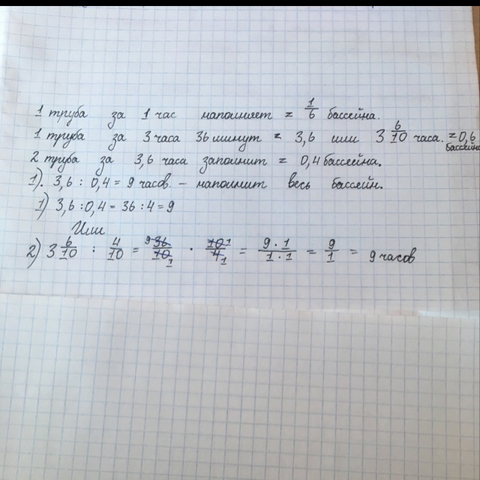 1 труба за 1 час наполняет = 1/6 бассейна.
1 труба за 3 часа 36 минут = 3,6 или 3 6/10 часа. = 0,6 бассейна
2 труба за 3,6 часа заполнит = 0,4 бассейна.
1). 3,6 : 0,4 = 9 часов. – наполнит весь бассейн.
1) 3,6 : 0,4 = 36 : 4 = 9
Или
2) 3 6/10 : 4/10 = 9 36/10 1 · 10 1/4 1 = 9 · 1/1 · 1 = 9/1 = 9 часов